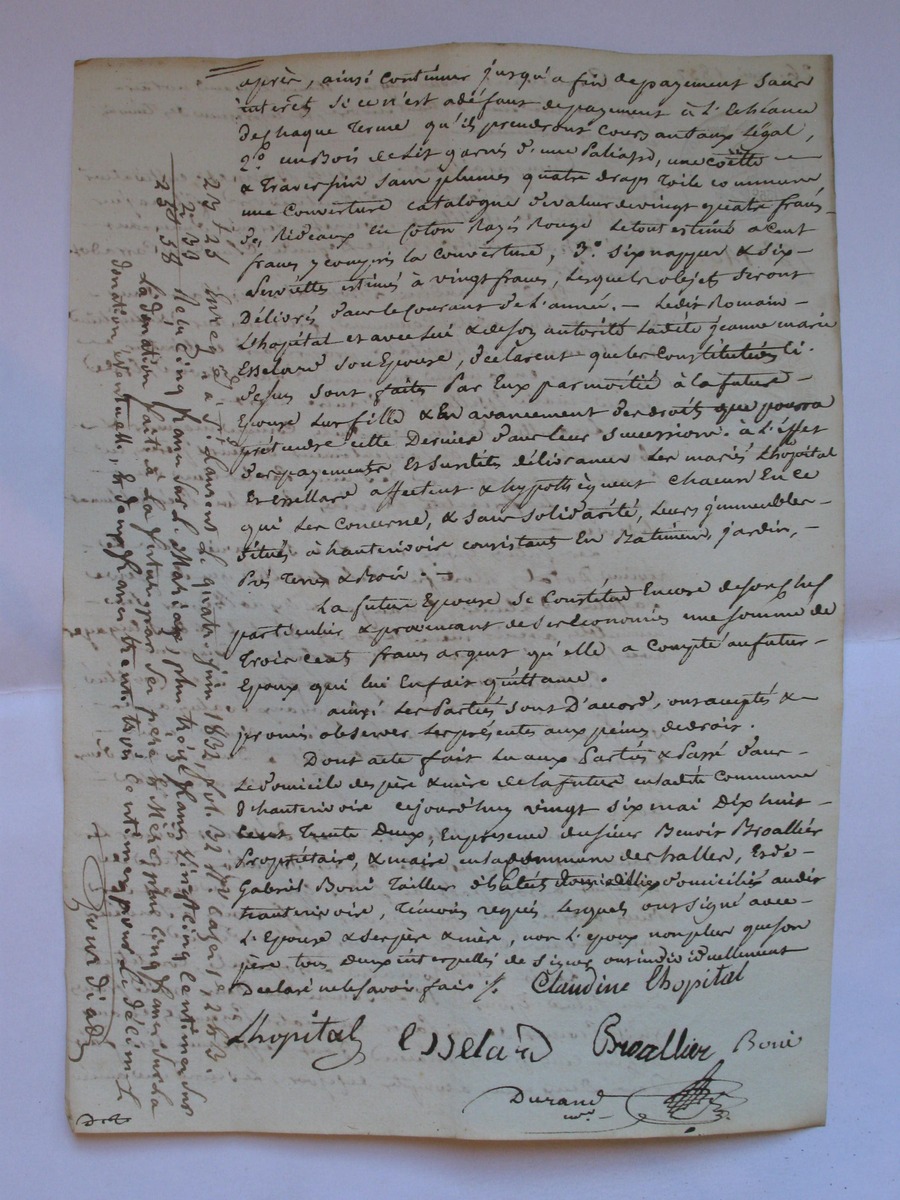 après, ainsi Continuer jusqu'a fin depayement sans
interets si cen'est adéfaut depayement à L'Echéance
dechaque Terme qu'ils prendront Cours autaux Légal,
2º un Bois de Lit garnis d'une Paliasse, une coëtte
& Traversin sans plumes quatre draps Toile commune
une Couverture catalogne devaleur devingt quatre francs
des Rideaux en Coton Rayés Rouge Letout estimé acent
francs y compris la Couverture, 3º six nappes & six
serviettes estimés à vingt francs, Lesquels objets seront
Délivrés dans le Courant de L'année. - Ledit Romain
Lhopital et avec Lui & de son autorité Ladite jeanne marie
Esselard son Epouse, déclarent que les Constitutions ci
dessus sont faites Par Eux par moitié à la future
Epouse Leur fille & En avancement des droits que pourra
prétendre cette Derniere dans leur succession. à L'effet
des payements Et susdites délivrances Les mariés Lhopital
Et Essellard affectent & hypothèquent chacun En ce
qui Les Concerne, & sans solidarité, Leurs jmmeubles
situés à hauterivoire consistants En Batiment, jardin,
Prés Terres & Bois. -
La future Epouse se Constitue Encore de son Chef
particulier & provenant de ses economies une somme de
Trois cent francs argent qu'elle a Compté au futur
Epoux qui lui En fait quittance.
ainsi Les Parties sont D'accord, ont acceptés &
promis observer Les présentes aux peines de droit.
Dont acte fait Lu aux Parties & Passé dans
Le domicile des père & mère de la future en ladite Commune
d'hauterivoire cejourd'huy vingt six mai Dix huit
Cent Trente Deux, En presence du sieur Benoit Broallier
Propriétaire, & maire en la Commune des halles, Et de
Gabriel Boné Tailler d'habits domicilié audit
hauterivoire, Témoins requis Lesquels ont signé avec
L'Epouse & ses père & mère, non L'epoux non plus que son
père tous deux interpellés de signer ont individuellement
Declaré ne le savoir faire ./. Claudine Lhopital
Lhopital Esselard Broallier Boné
Durand
23 f 25
2. 33
25 f. 58
Enreg. à St. Laurent le quatre juin 1832 fol. 32
Reçu cinq francs sur le Mariage, plus trois francs vingt cinq centimes sur
La donation faite à la future par ses père & Mère, cinq francs sur la
donation Eventuelle, & deux francs trente trois Centimes pour le décime